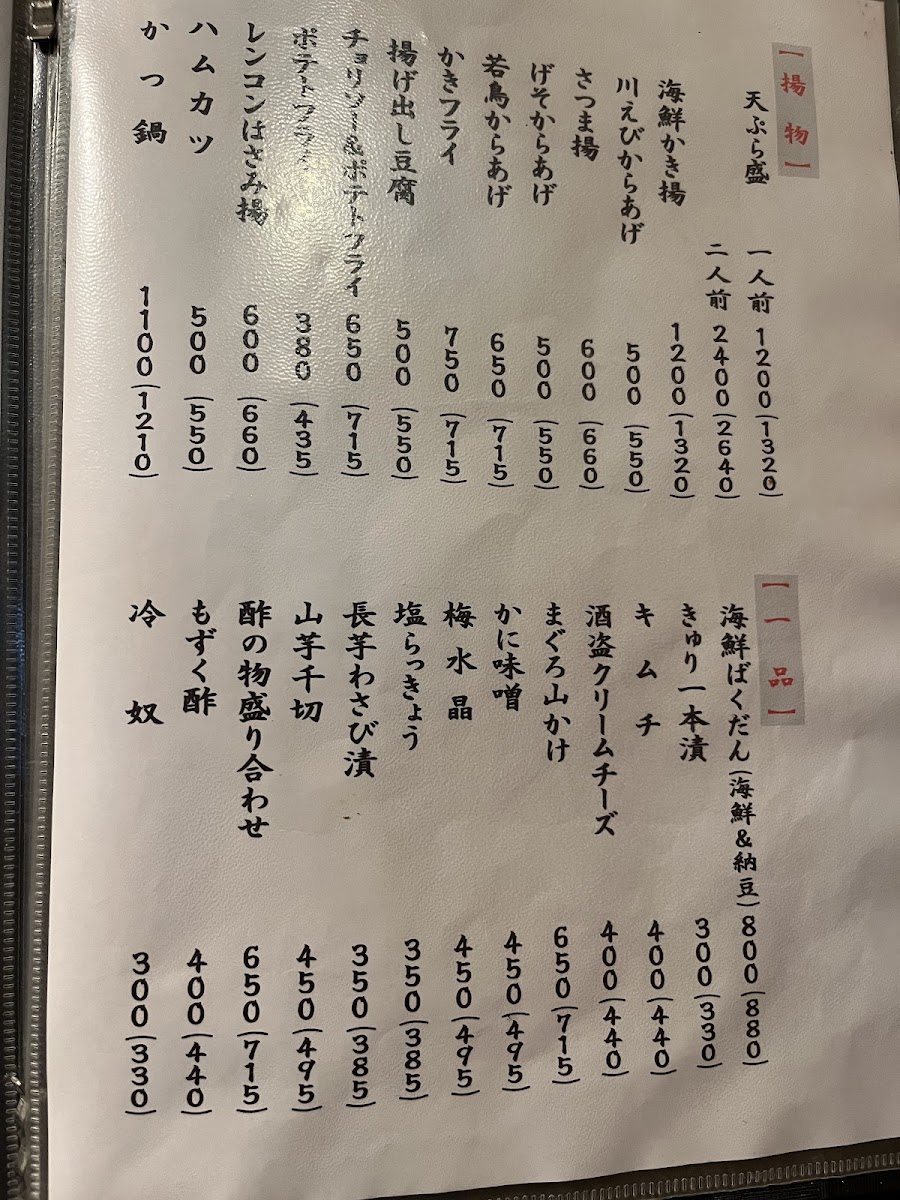 【揚物】
天ぷら盛 一人前 1200(1320)
二人前 2400(2640)
海鮮かき揚 1200(1320)
川えびからあげ 500(550)
さつま揚 600(660)
げそからあげ 500(550)
若鳥からあげ 650(715)
かきフライ 750(715)
揚げ出し豆腐 500(550)
チョリソー&ポテトフライ 650(715)
ポテトフライ 380(435)
レンコンはさみ揚 600(660)
ハムカツ 500(550)
かつ鍋 1100(1210)
【一品】
海鮮ばくだん(海鮮&納豆) 800(880)
きゅり一本漬 300(330)
キムチ 400(440)
酒盗クリームチーズ 400(440)
まぐろ山かけ 650(715)
かに味噌 450(495)
梅水晶 450(495)
塩らっきょう 350(385)
長芋わさび漬 350(385)
山芋千切 450(495)
酢の物盛り合わせ 650(715)
もずく酢 400(440)
冷奴 300(330)